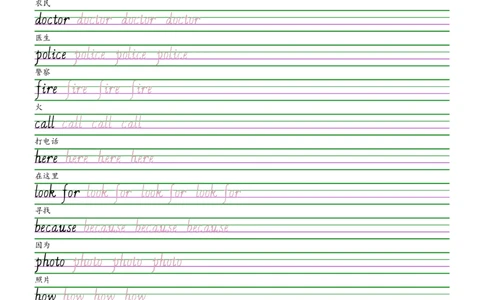 农民
doctor doctor doctor doctor
医生
police police police police
警察
fire fire fire fire
火
call call call call
打电话
here here here here
在这里
look for look for look for look for
寻找
because because because because
因为
photo photo photo photo
照片
how how how how